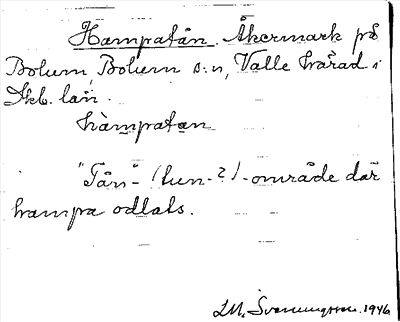 Hampatån. Åkermark på
Bolum, Bolum s:n, Valle härad i
Skb. län.
hàmpatan
"Tån"- (tun-?)-område där
hampa odlats.
LM. Svenungsson. 1946